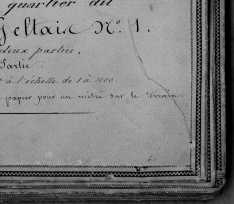 quartier du
Geltais Nº 1.
deux parties.
Partie
à l'échelle de 1 à 1000
papier pour un mètre sur le terrain